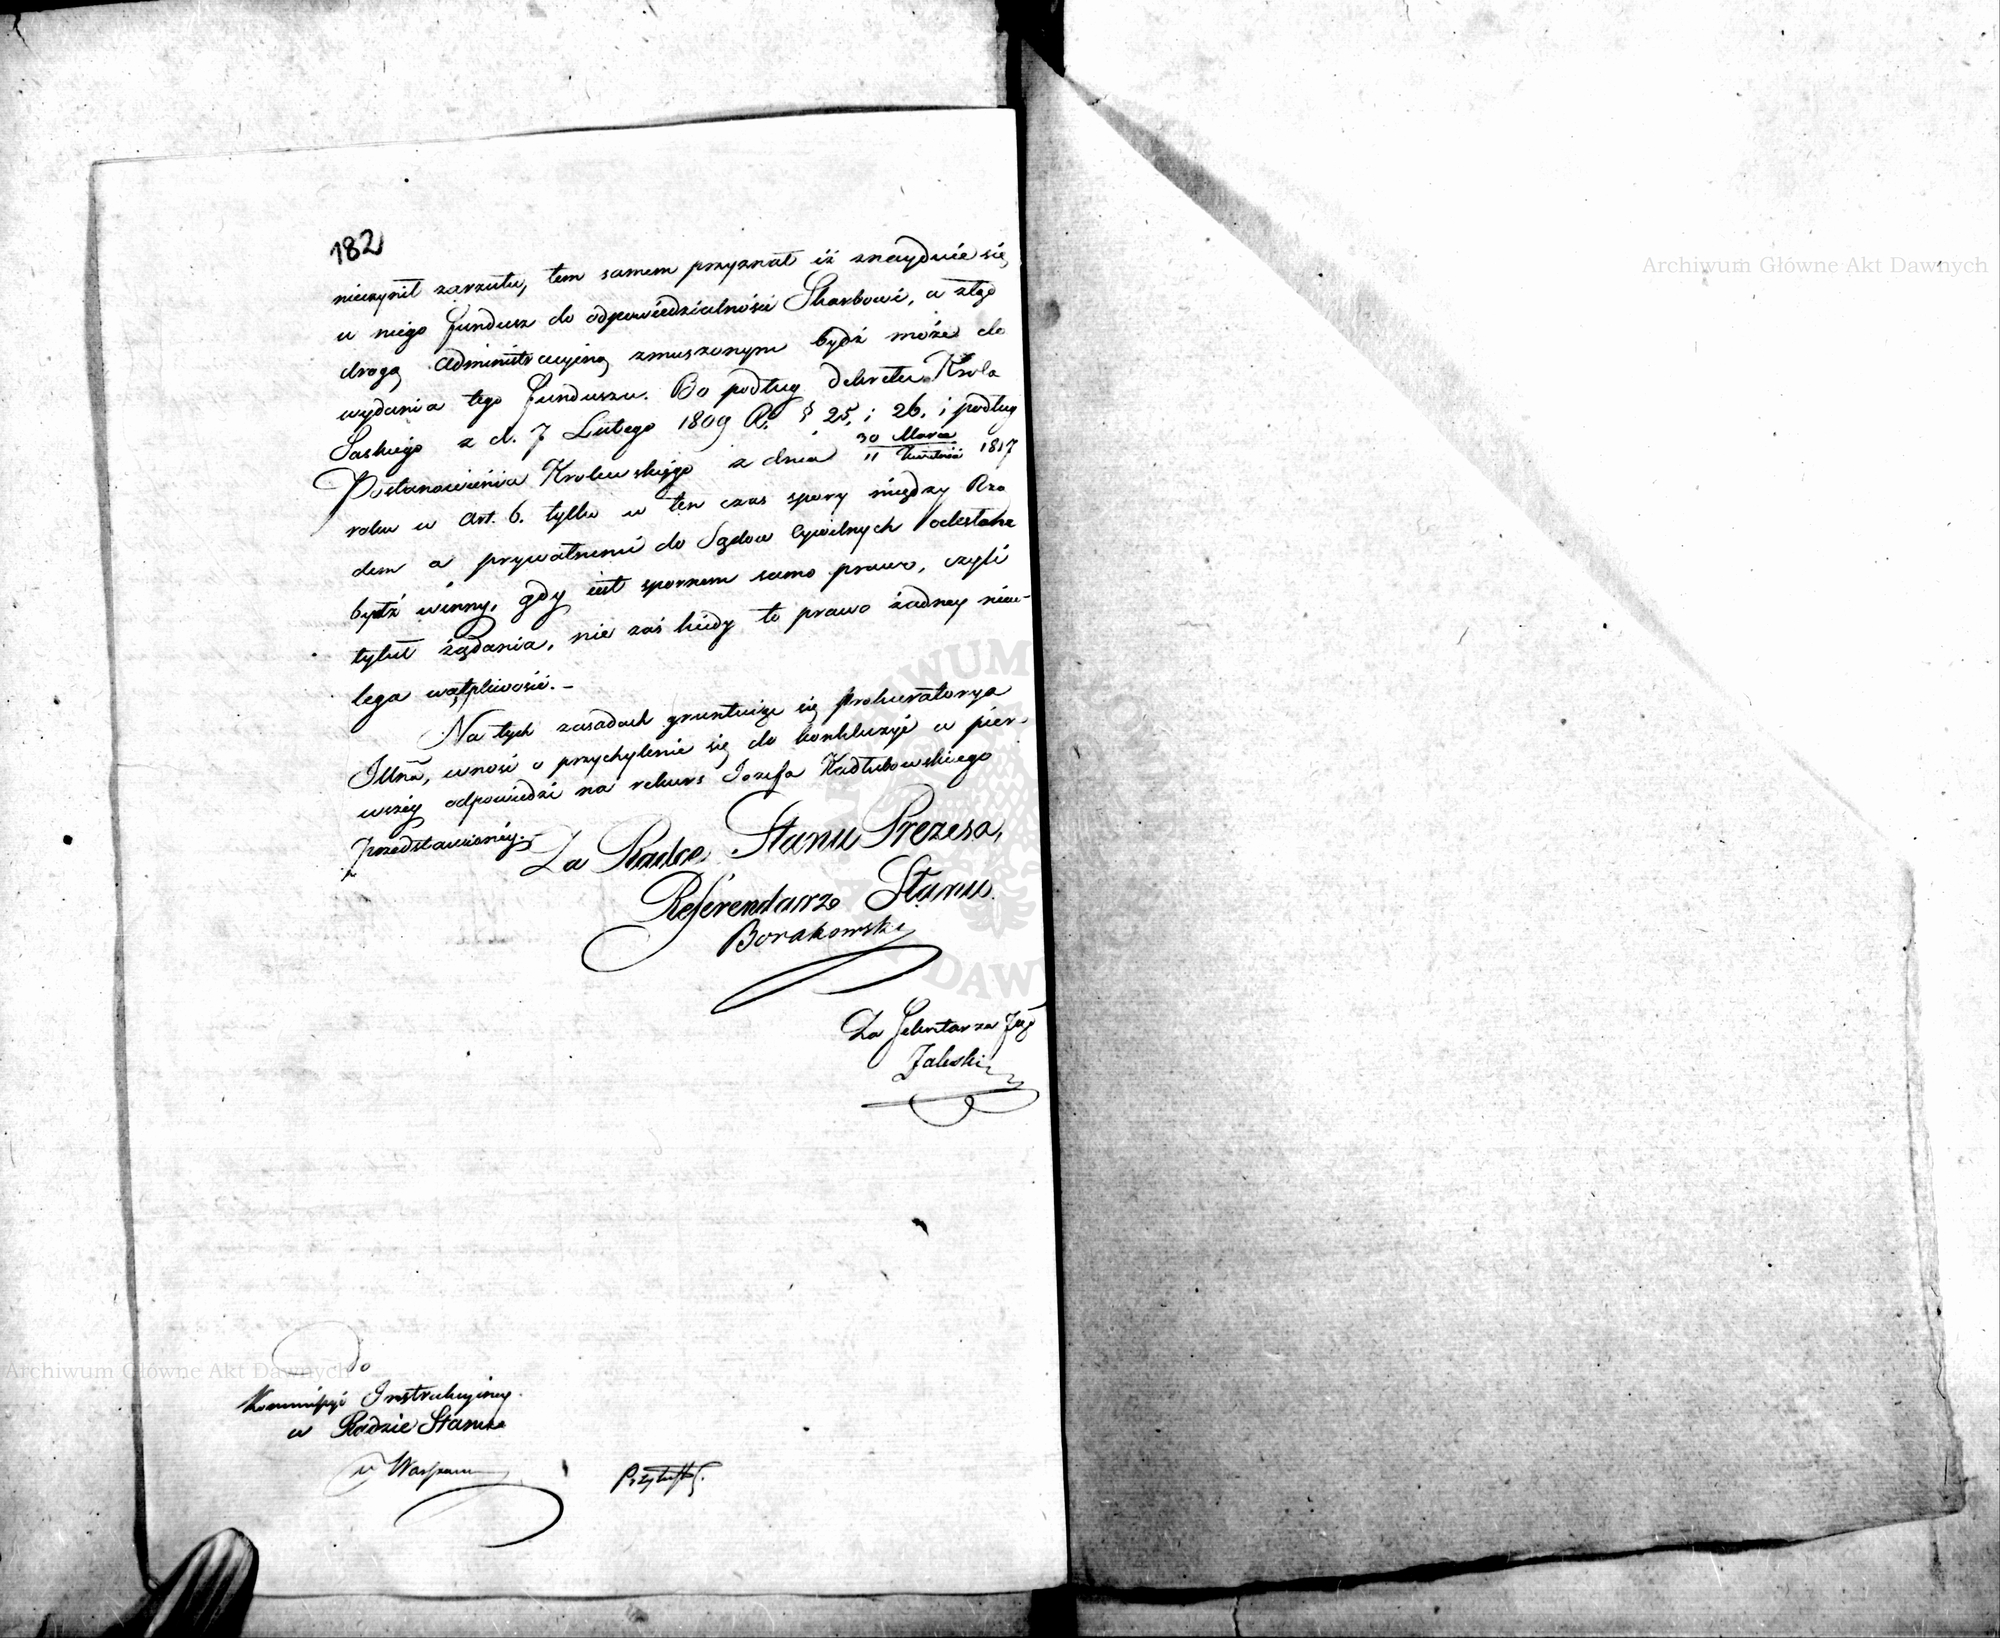 182
nieczynił zarzutu, tem samem przyznał iż znayduie się
u niego fundusz do odpowiedzialności Skarbowi, a ztąd
drogą administracyiną zmuszonym bydź może do
wydania tego funduszu. Bo podług dekretu Krola
Saskiego z d. 7 Lutego 1809 R. § 25, i 26. i podług
Postanowienia Krolewskiego z dnia 30 Marca / 11 Kwietnia 1817
roku w Art. 6. tylko w ten czas spory między Rzą
dem a prywatnemi do Sądow Cywilnych odesłane
bydź winny, gdy iest spornem samo prawo, czyli
tytuł żądania, nie zaś kiedy to prawo żadney nieu-
lega wątpliwości. –
Na tych zasadach gruntuiąc się Prokuratorya
Jllna, wnosi o przychylenie się do konkluzyi w pier-
wszey odpowiedzi na rekurs Jozefa Kadłubowskiego
przedstawioney.
Za Radcę Stanu Prezesa,
Referendarz Stanu
Borakowski
Za Sekretarza
Zaleski
Do
Kommissyi Instrukcyiney
w Radzie Stanu
w
Archiwum Główne Akt Dawnych
Archiwum Główne Akt Dawnych